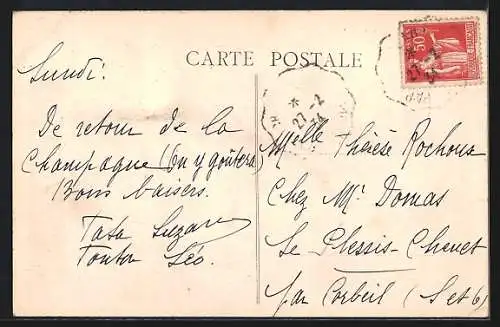 CARTE POSTALE
Lundi.
De retour de la
Champagne (On y goûtera)
Bons baisers.
Tata Suzan
Tonton Léo.
50c
27-2
34
27-2
34
Melle Thérèse Rochoux
Chez Mr. Domas
Le Plessis-Chenet
par Corbeil (S et O)